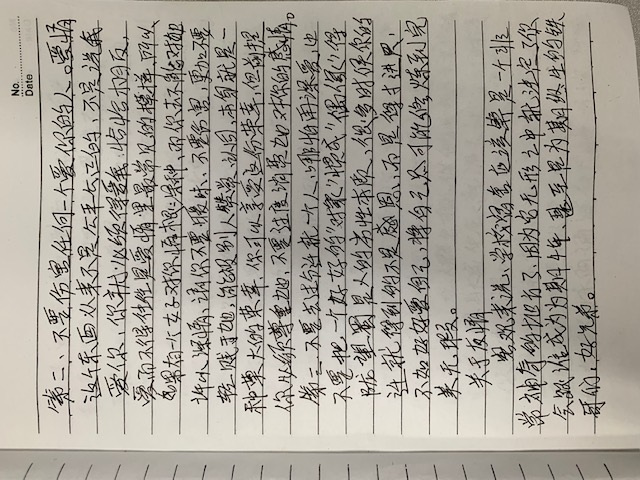 No.
Date
第二、不要伤害任何一个爱你的人。爱情
这个东西从来不是公平公正的，不是说我
爱你，你就必须得爱我，恰恰相反，
爱而不得往往是爱情里最常见的模样，所以
如果有一个女子对你情根深种，而你去不能对她
许以深情，请你不要暧昧、不要伤害，更加不要
轻贱于她，能被别人赞赏、认同，本身就是一
种莫大的荣幸，你可以享受这份荣幸，但前提
你必须尊重她，不要过度消费她对你的感情。
第三、不要去过分迁就一个人，哪怕再深爱，也
不要把一个好好的“对象”惯成“偶像”得
陇望蜀是人的劣性本质，很多时候你的
迁就得到的不是感恩，而是得寸进尺，
不如好好爱自己，将自己尽可能修炼到完
美无瑕。
关于友情
客观来说，学校宿舍应该算是一个非
常神奇的地方了，因为它无形之中就决定了你
会跟谁成为为期4年、甚至是为期终生的铁
哥们，好兄弟。